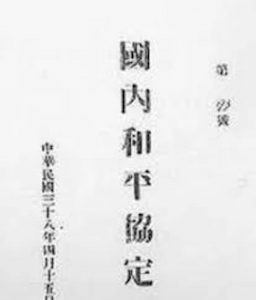 第 號
國內和平協定
中華民國三十八年四月十五日